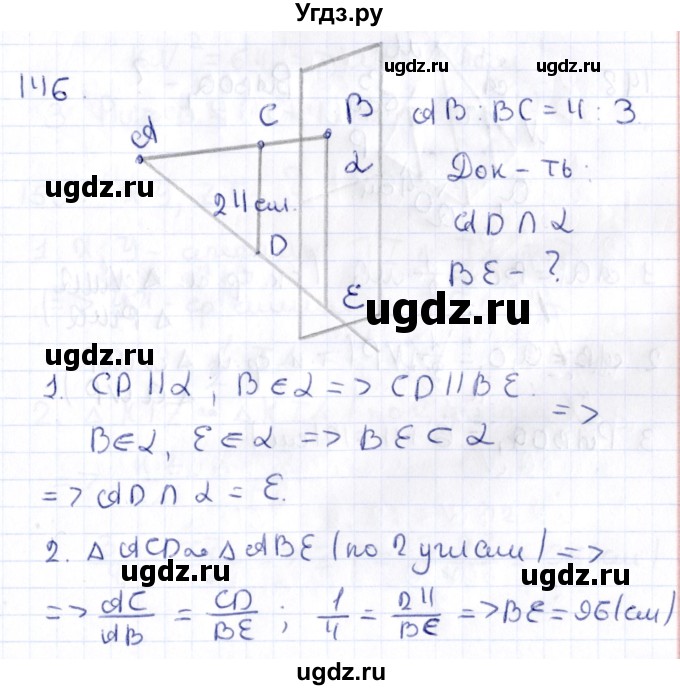 Угдз.ру
146.
ugdz.ru
ugdz.ru
A
C
B
AB : BC = 4 : 3
α
24 см.
Док-ть:
ugdz.ru
D
AD ∩ α
E
BE - ?
ugdz.ru
1. CD || α ; B ∈ α => CD || BE.
=>
B ∈ α, E ∈ α => BE ⊂ α
ugdz.ru
=> AD ∩ α = E.
2. Δ ACD ∾ Δ ABE (по 2 углам) =>
ugdz.ru
ugdz.ru
=> AC/AB = CD/BE ; 1/4 = 24/BE => BE = 96 (см)
ugdz.ru